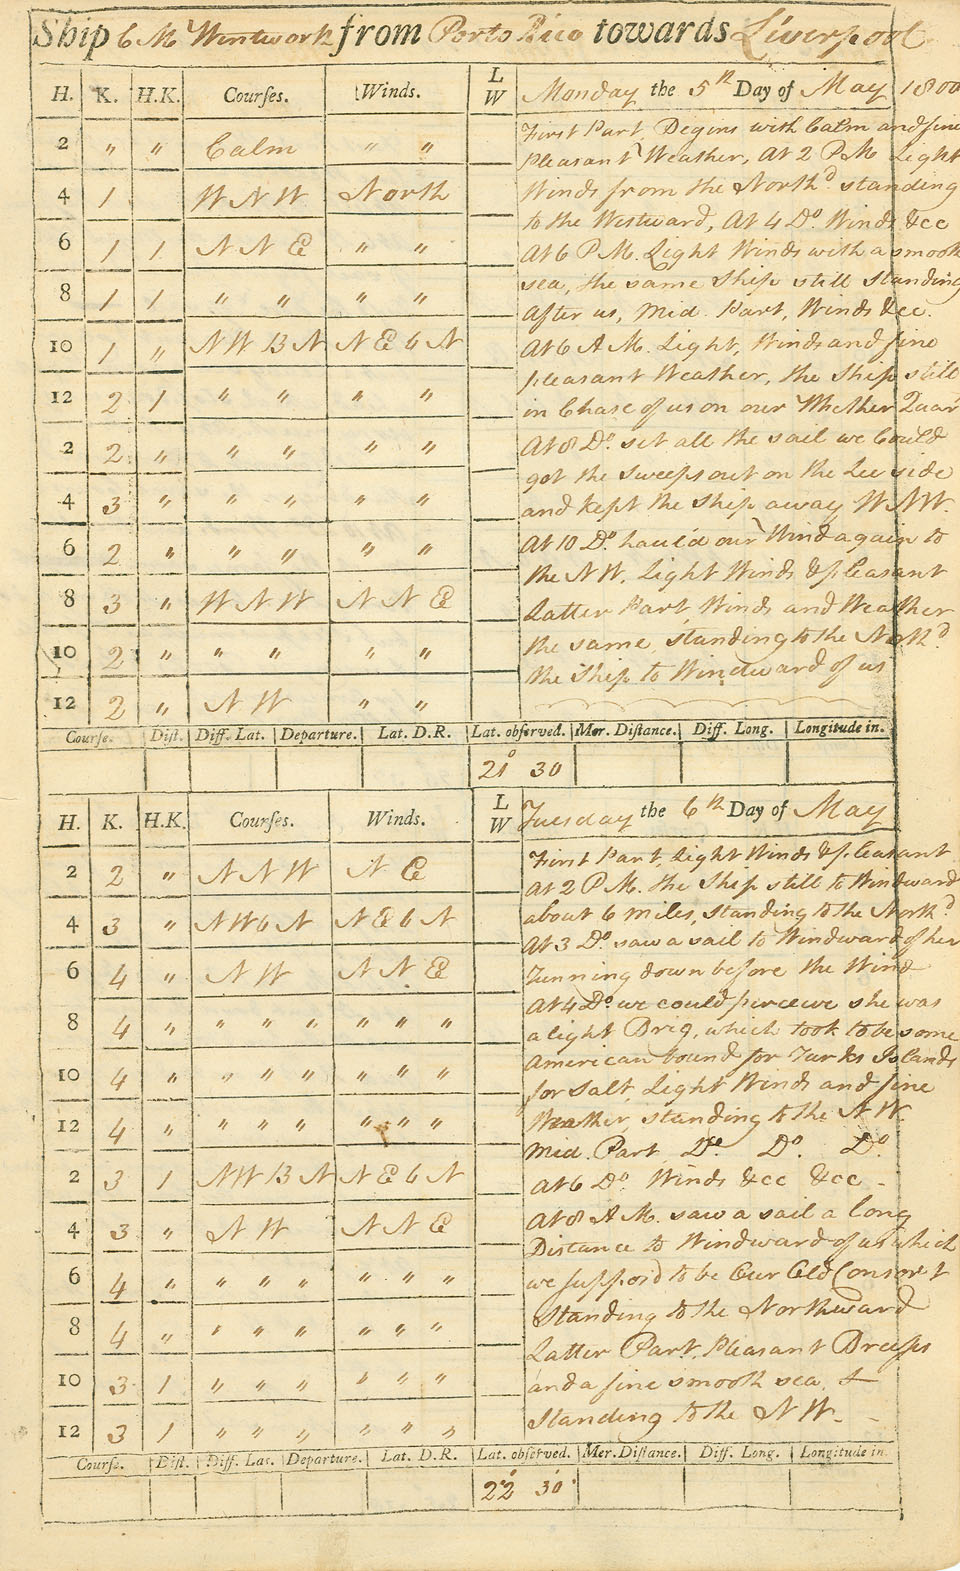 Ship C M Wentworth from Porto Rico towards Liverpool
H. K. H.K. Courses. Winds. L W Monday the 5th Day of May 1800
First Part Begins with Calm and fine
2 " " Calm " "
Pleasant Weather, At 2 P M Light
4 1 W N W North
Winds from the North.d standing
to the Westward, At 4 Do Winds &cc
6 1 1 N N E " "
At 6 P M. Light Winds with a smooth
sea, the same Ship still standing
8 1 1 " " " "
after us, Mid. Part, Winds &cc.
10 1 " N W B N N E b N
At 6 A M. Light, Winds and fine
pleasant Weather, the Ship still
12 2 1 " " " "
in Chase of us on our Whether Quar
2 2 " " " " "
At 8 Do. set all the sail we Could
got the sweeps out on the Lee side
4 3 " " " " "
and kept the Ship away W N W.
6 2 " " " " "
At 10 Do. haul'd our Wind again to
the N W. Light Winds & pleasant
8 3 " W N W N N E
Latter Part, Winds and Weather
10 2 " " " " "
the same, standing to the North.d
the Ship to Windward of us
12 2 " N W " "
Course. Dist. Diff. Lat. Departure. Lat. D.R. Lat. observed. Mer. Distance. Diff. Long. Longitude in.
21° 30
H. K. H.K. Courses. Winds. L W Tuesday the 6th Day of May
First Part, Light Winds & pleasant
2 2 " N N W N E
At 2 P M. the Ship still to Windward
about 6 miles, standing to the North.d
4 3 " N W b N N E b N
At 3 Do saw a sail to Windward of her
6 4 " N W N N E
running down before the Wind
At 4 Do we could perceive she was
8 4 " " " " " " "
a light Brig, which took to be some
American bound for Turks Islands
10 4 " " " " " " "
for Salt, Light Winds and fine
12 4 " " " " " " "
Weather, standing to the N W.
Mid. Part Do. Do. Do.
2 3 1 N W B N N E b N
At 6 Do. Winds &cc &cc -
4 3 " N W N N E
At 8 A M. saw a sail a long
Distance to Windward of us which
6 4 " " " " " " "
we suppos'd to be Our Old Consort
8 4 " " " " " " "
Standing to the Northward
Latter Part, Pleasant Breeses
10 3 1 " " " " " "
and a fine smooth sea, &
12 3 1 " " " " " "
standing to the N W. -
Course. Dist. Diff. Lat. Departure. Lat. D.R. Lat. observed. Mer. Distance. Diff. Long. Longitude in.
22° 30'